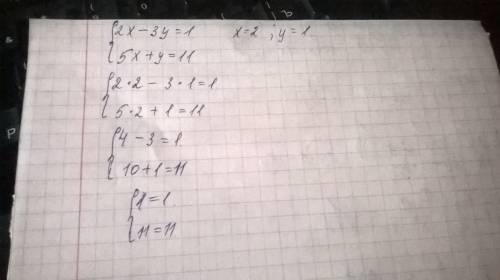 {2x-3y=1 x=2 ; y=1
{5x+y=11
{2*2-3*1=1
{5*2+1=11
{4-3=1.
{10+1=11
{1=1
{11=11